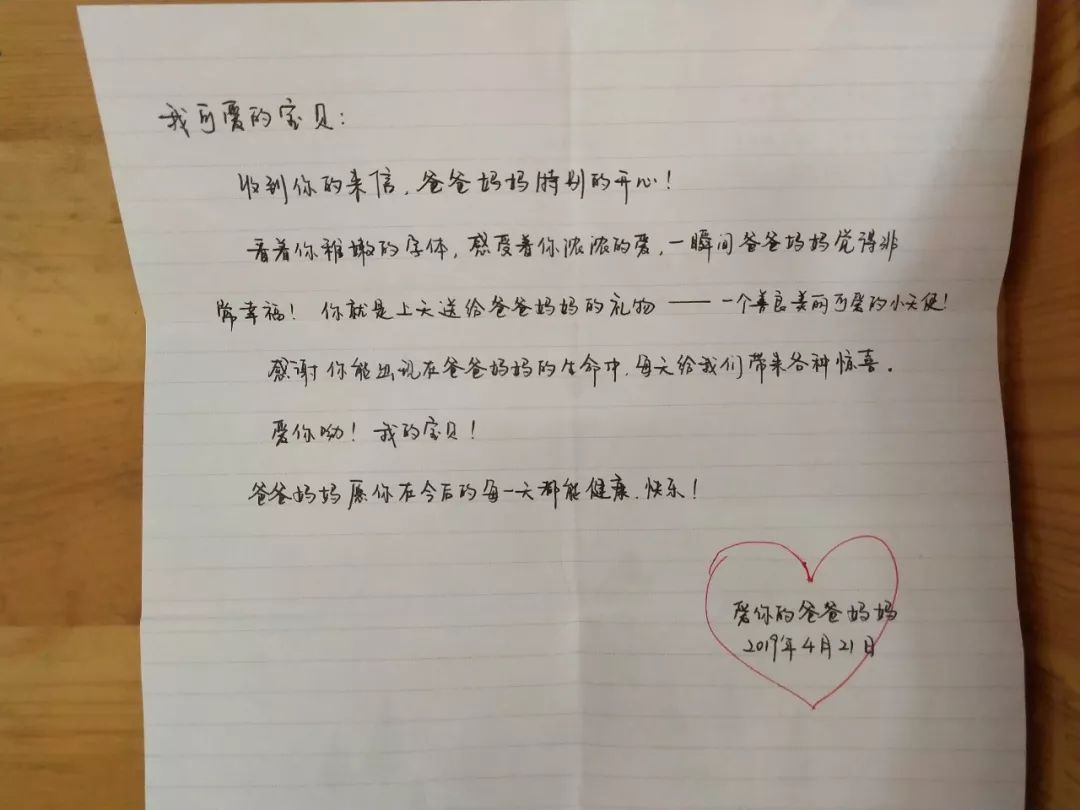 我可爱的宝贝：
收到你的来信，爸爸妈妈特别的开心！
看着你稚嫩的字体，感受着你浓浓的爱，一瞬间爸爸妈妈觉得非
常幸福！你就是上天送给爸爸妈妈的礼物——一个善良美丽可爱的小天使！
感谢你能出现在爸爸妈妈的生命中，每天给我们带来各种惊喜。
爱你呦！我的宝贝！
爸爸妈妈愿你在今后的每一天都能健康、快乐！
爱你的爸爸妈妈
2019年4月21日